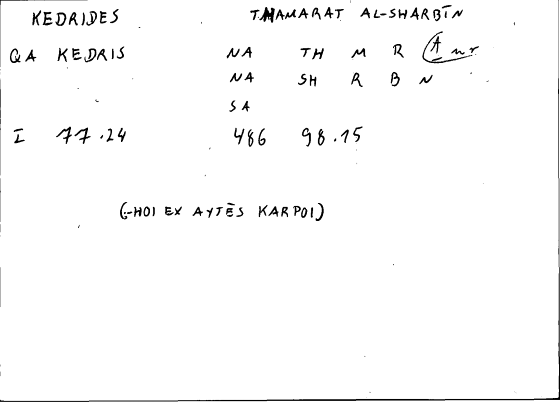 KEDRIDES THAMARAT AL-SHARBĪN
QA KEDRIS NA TH M R (A nr
NA SH R B N
SA
I 77.24 486 98.15
(-HOI EX AYTĒS KARPOI)